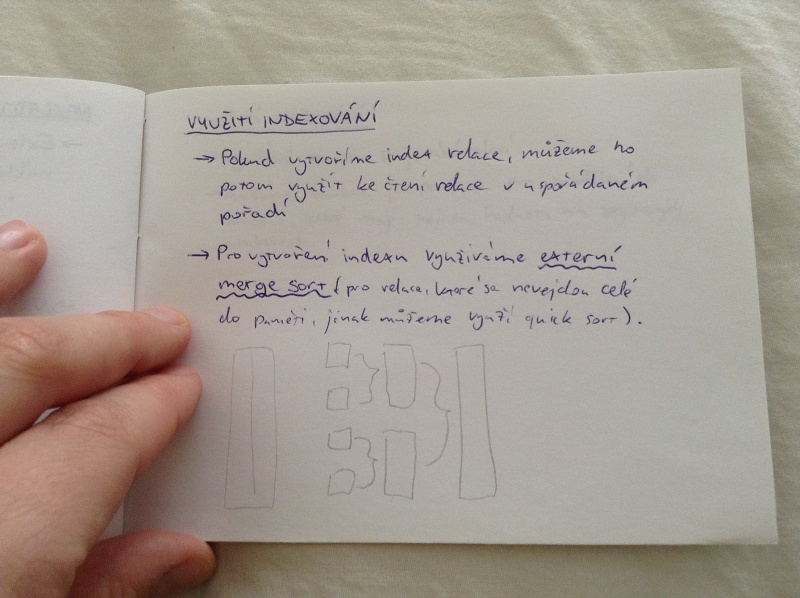 VYUŽITÍ INDEXOVÁNÍ
→ Pokud vytvoříme index relace, můžeme ho
potom využít ke čtení relace v uspořádaném
pořadí
→ Pro vytvoření indexu využíváme externí
merge sort (pro relace, které se nevejdou celé
do paměti, jinak můžeme využí quick sort).